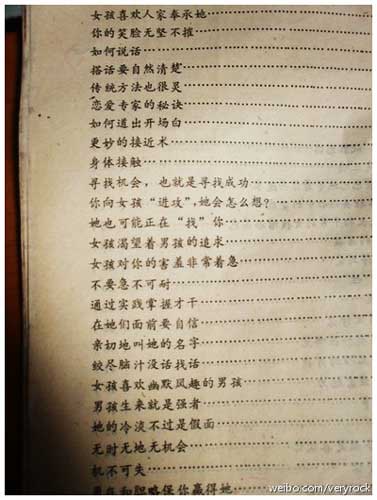 女孩喜欢人家奉承她
你的笑脸无坚不摧
如何说话
搭话要自然清楚
传统方法也很灵
恋爱专家的秘诀
如何道出开场白
更妙的接近术
身体接触
寻找机会，也就是寻找成功
你向女孩“进攻”，她会怎么想？
她也可能正在“找”你
女孩渴望着男孩的追求
女孩对你的害羞非常着急
不要急不可耐
通过实践掌握才干
在她们面前要自信
亲切地叫她的名字
绞尽脑汁没话找话
女孩喜欢幽默风趣的男孩
男孩生来就是强者
她的冷淡不过是假面
无时无地无机会
机不可失
和胆略保你赢得她
weibo.com/veryrock